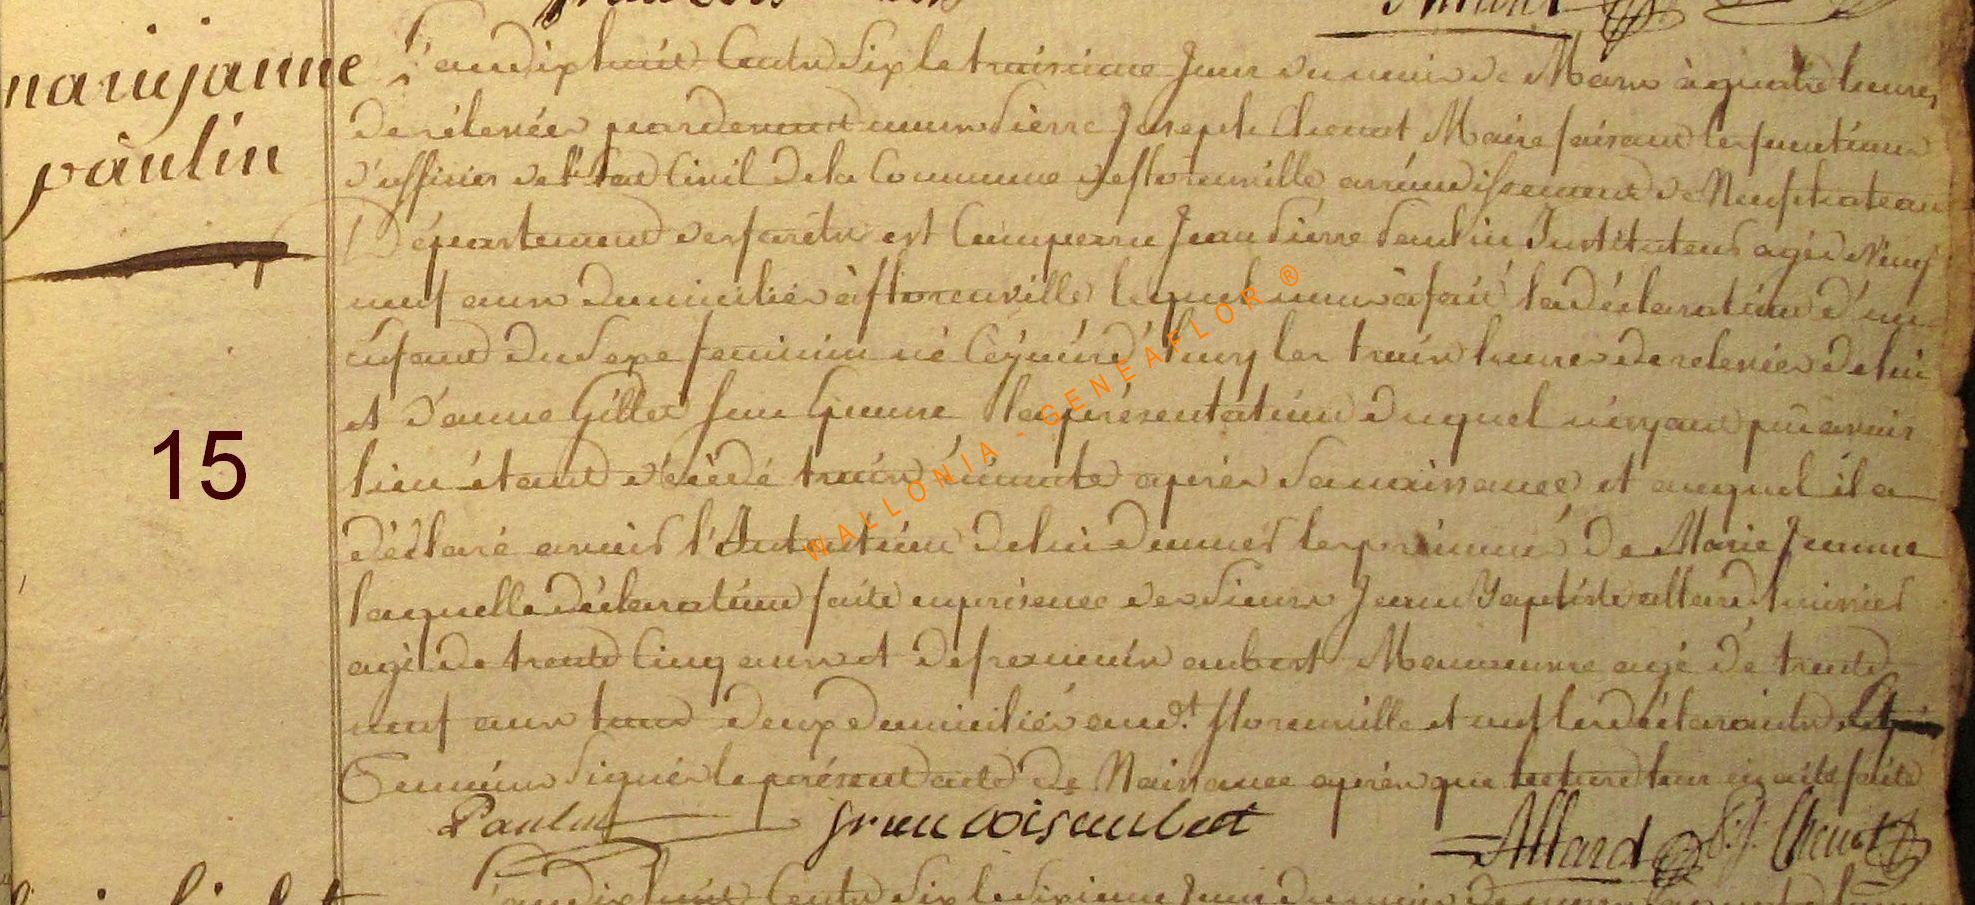 mariejanne
paulin
15
L'an dix huit Cents Six le troisieme Jour du mois de Mars à quatre heures
de rélevée pardevant nous Pierre Joseph Chenot Maire faisant les fonctions
d'officier de l'Etat Civil de la Commune de florenville arrondissement de Neufchateau
Département des forêts est Comparu Jean Pierre Paulin Instituteur agé de Vingt
neuf ans domicilié à florenville lequel nous à fait la déclaration d'un
enfant du Sexe feminin né Cejourd'huy les trois heures de relevée de lui
et d'anne Gillet Son Epouse la présentation duquel n'ayant pu avoir
lieu étant décédé trois minutes après Sa naissance et auquel il a
déclaré avoir l'Intention de lui donner les prénoms de Marie Jeanne
laquelle déclaration faite en présence des Sieurs Jean Baptiste allard huissier
agé de trente Cinq ans et de françois aubert Manoeuvre agé de trente
neuf ans tous deux domiciliés aud.t florenville et ont les déclarants et
témoins Signés le présent acte de Naissance après que lecture leur en aité faite
Paulin
francois aubert
Allard
P: J: Chenot
L'an dix huit Cents Six le Sixieme Jour du mois de
WALLONIA - GENEAFLOR ®